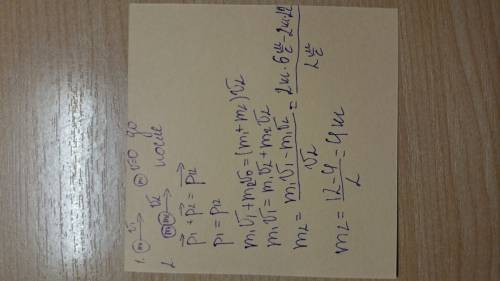 1. m₁ v₁→ m₂ v=0 до
2. m₁m₂ v₂→ после
p₁ + p₂ = p₁₂
p₁ = p₁₂
m₁v₁ + m₂v₀ = (m₁+m₂)v₂
m₁v₁ = m₁v₂ + m₂v₂
m₂ = (m₁v₁ − m₁v₂)/v₂ = (2кг · 6 м/с − 2кг·2)/(2 м/с)
m₂ = (12−4)/2 = 4кг